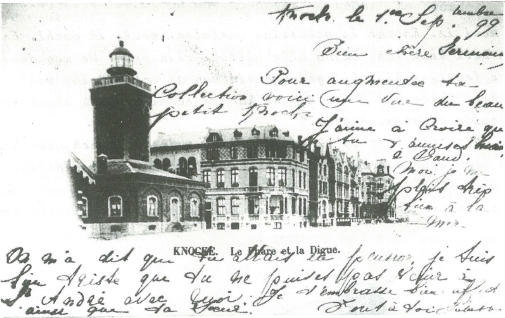 Knocke, le 1er Septembre 99
Bien chère Germaine
Pour augmenter ta
Collection, voici une vue du beau
petit Knocke
J'aime à croire que
tu t'amuses bien
à Gand.
Moi, je me
plais très
bien à la
mer.
KNOCKE. Le Phare et la Digue.
On m'a dit que tu allais en pension, je suis
bien triste que tu ne puisses pas venir à
St André avec moi. Je t'embrasse bien
ainsi que ta sœur. Tout à toi